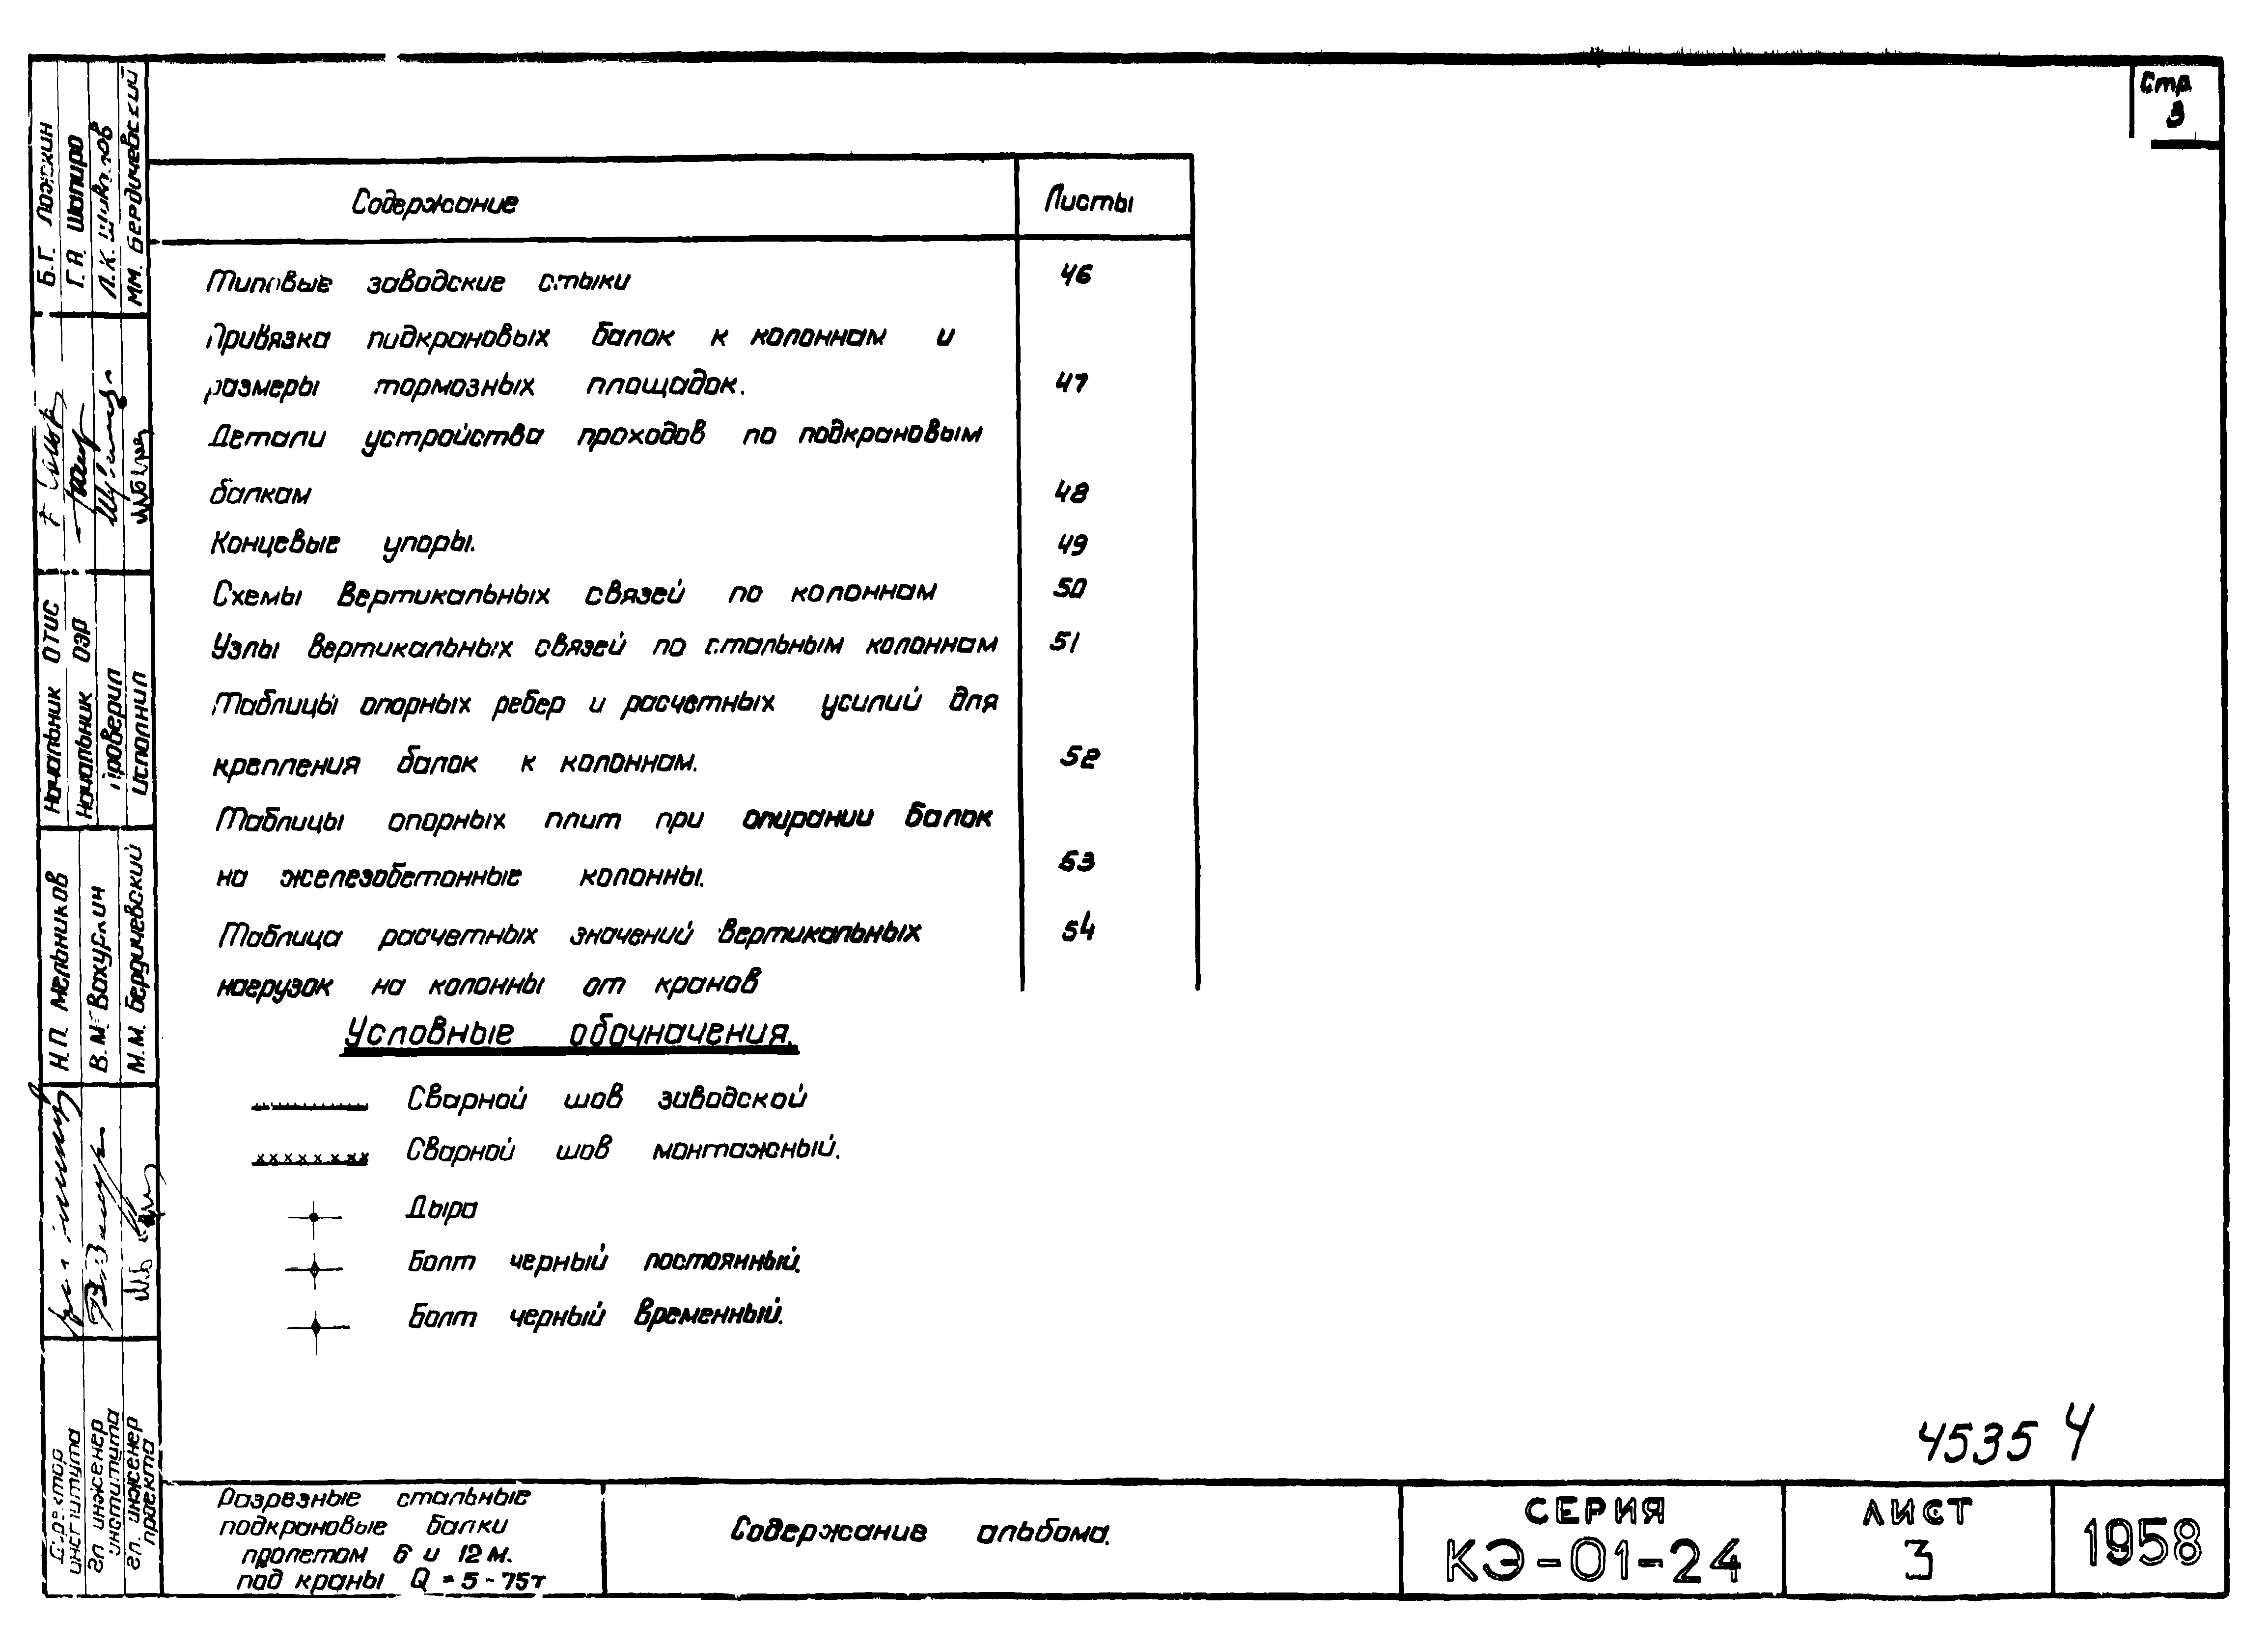 Стр.
3
Содержание Листы
Типовые заводские стыки 46
Привязка подкрановых балок к колоннам и
размеры тормозных площадок. 47
Детали устройства проходов по подкрановым
балкам 48
Концевые упоры. 49
Схемы вертикальных связей по колоннам 50
Узлы вертикальных связей по стальным колоннам 51
Таблицы опорных ребер и расчетных усилий для
крепления балок к колоннам. 52
Таблицы опорных плит при опирании балок
на железобетонные колонны. 53
Таблица расчетных значений вертикальных 54
нагрузок на колонны от кранов
Условные обозначения.
Сварной шов заводской
Сварной шов монтажный.
Дыра
Болт черный постоянный.
Болт черный временный.
4535 4
Разрезные стальные
подкрановые балки
пролетом 6 и 12 м.
под краны Q = 5 - 75т
Содержание альбома.
СЕРИЯ
КЭ-01-24
ЛИСТ
3
1958
Директор института Н.П. Мельников
Гл. инженер института В.М. Вахуркин
Гл. инженер проекта М.М. Бердичевский
Начальник ОТИС Б.Г. Ложкин
Начальник ОЭР Г.А. Шапиро
Проверил Л.К.
Исполнил М.М. Бердичевский